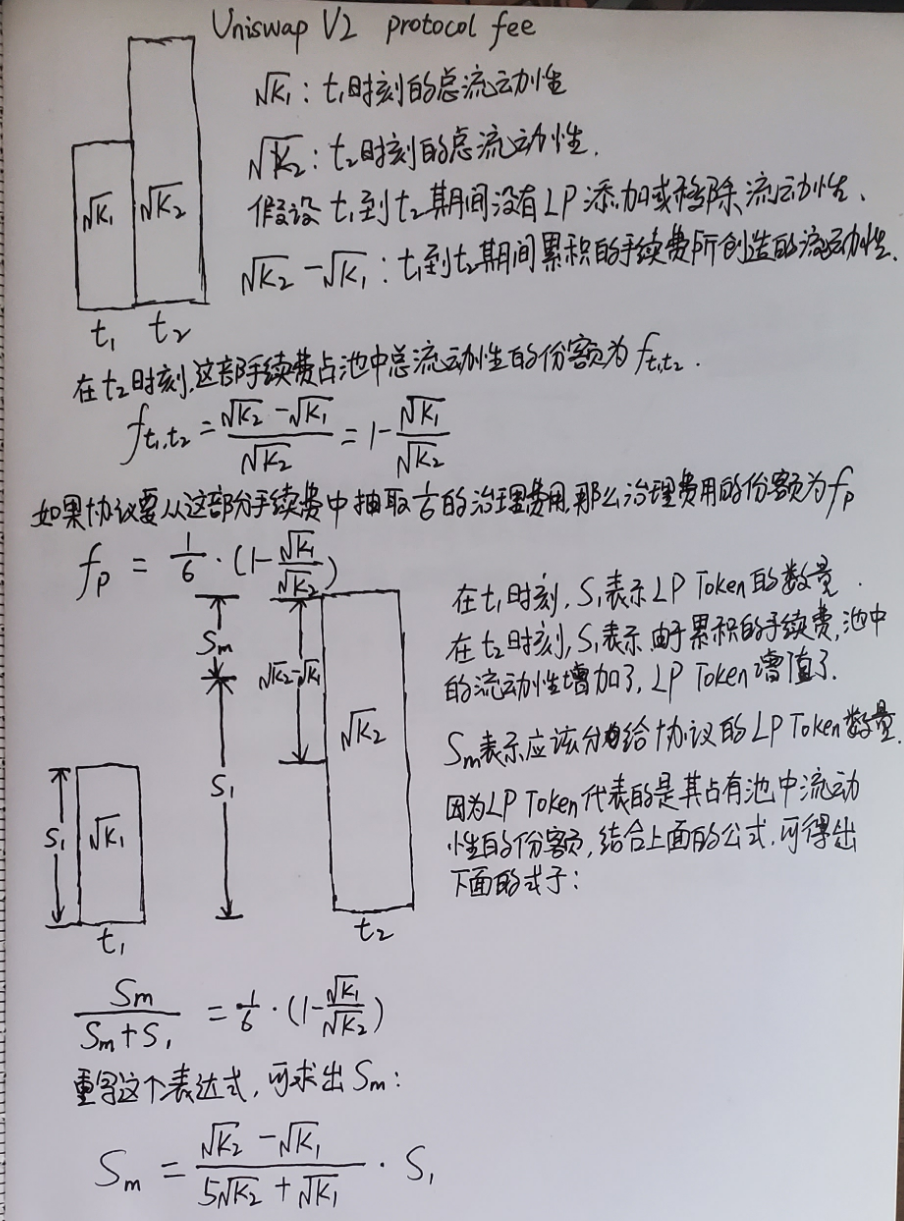 Uniswap V2 protocol fee
√K₁ √K₂
t₁ t₂
√K₁: t₁时刻的总流动性
√K₂: t₂时刻的总流动性.
假设 t₁到t₂期间没有LP添加或移除流动性、
√K₂ - √K₁: t₁到t₂期间累积的手续费所创造的流动性.
在t₂时刻,这部手续费占池中总流动性的份额为 f_{t₁,t₂}.
f_{t₁,t₂} = (√K₂ - √K₁)/√K₂ = 1 - √K₁/√K₂
如果协议要从这部分手续费中抽取 1/6 的治理费用,那么治理费用的份额为 fₚ
fₚ = 1/6 · (1 - √K₁/√K₂)
S₁ √K₁
t₁
Sₘ
S₁
√K₂-√K₁
√K₂
t₂
在t₁时刻, S₁表示LP Token的数量.
在t₂时刻, S₁表示由于累积的手续费,池中
的流动性增加了, LP Token增值了.
Sₘ表示应该分给协议的LP Token数量.
因为LP Token代表的是其占有池中流动
性的份额,结合上面的公式.可得出
下面的式子:
Sₘ/(Sₘ+S₁) = 1/6 · (1 - √K₁/√K₂)
重写这个表达式,可求出Sₘ:
Sₘ = (√K₂ - √K₁)/(5√K₂ + √K₁) · S₁